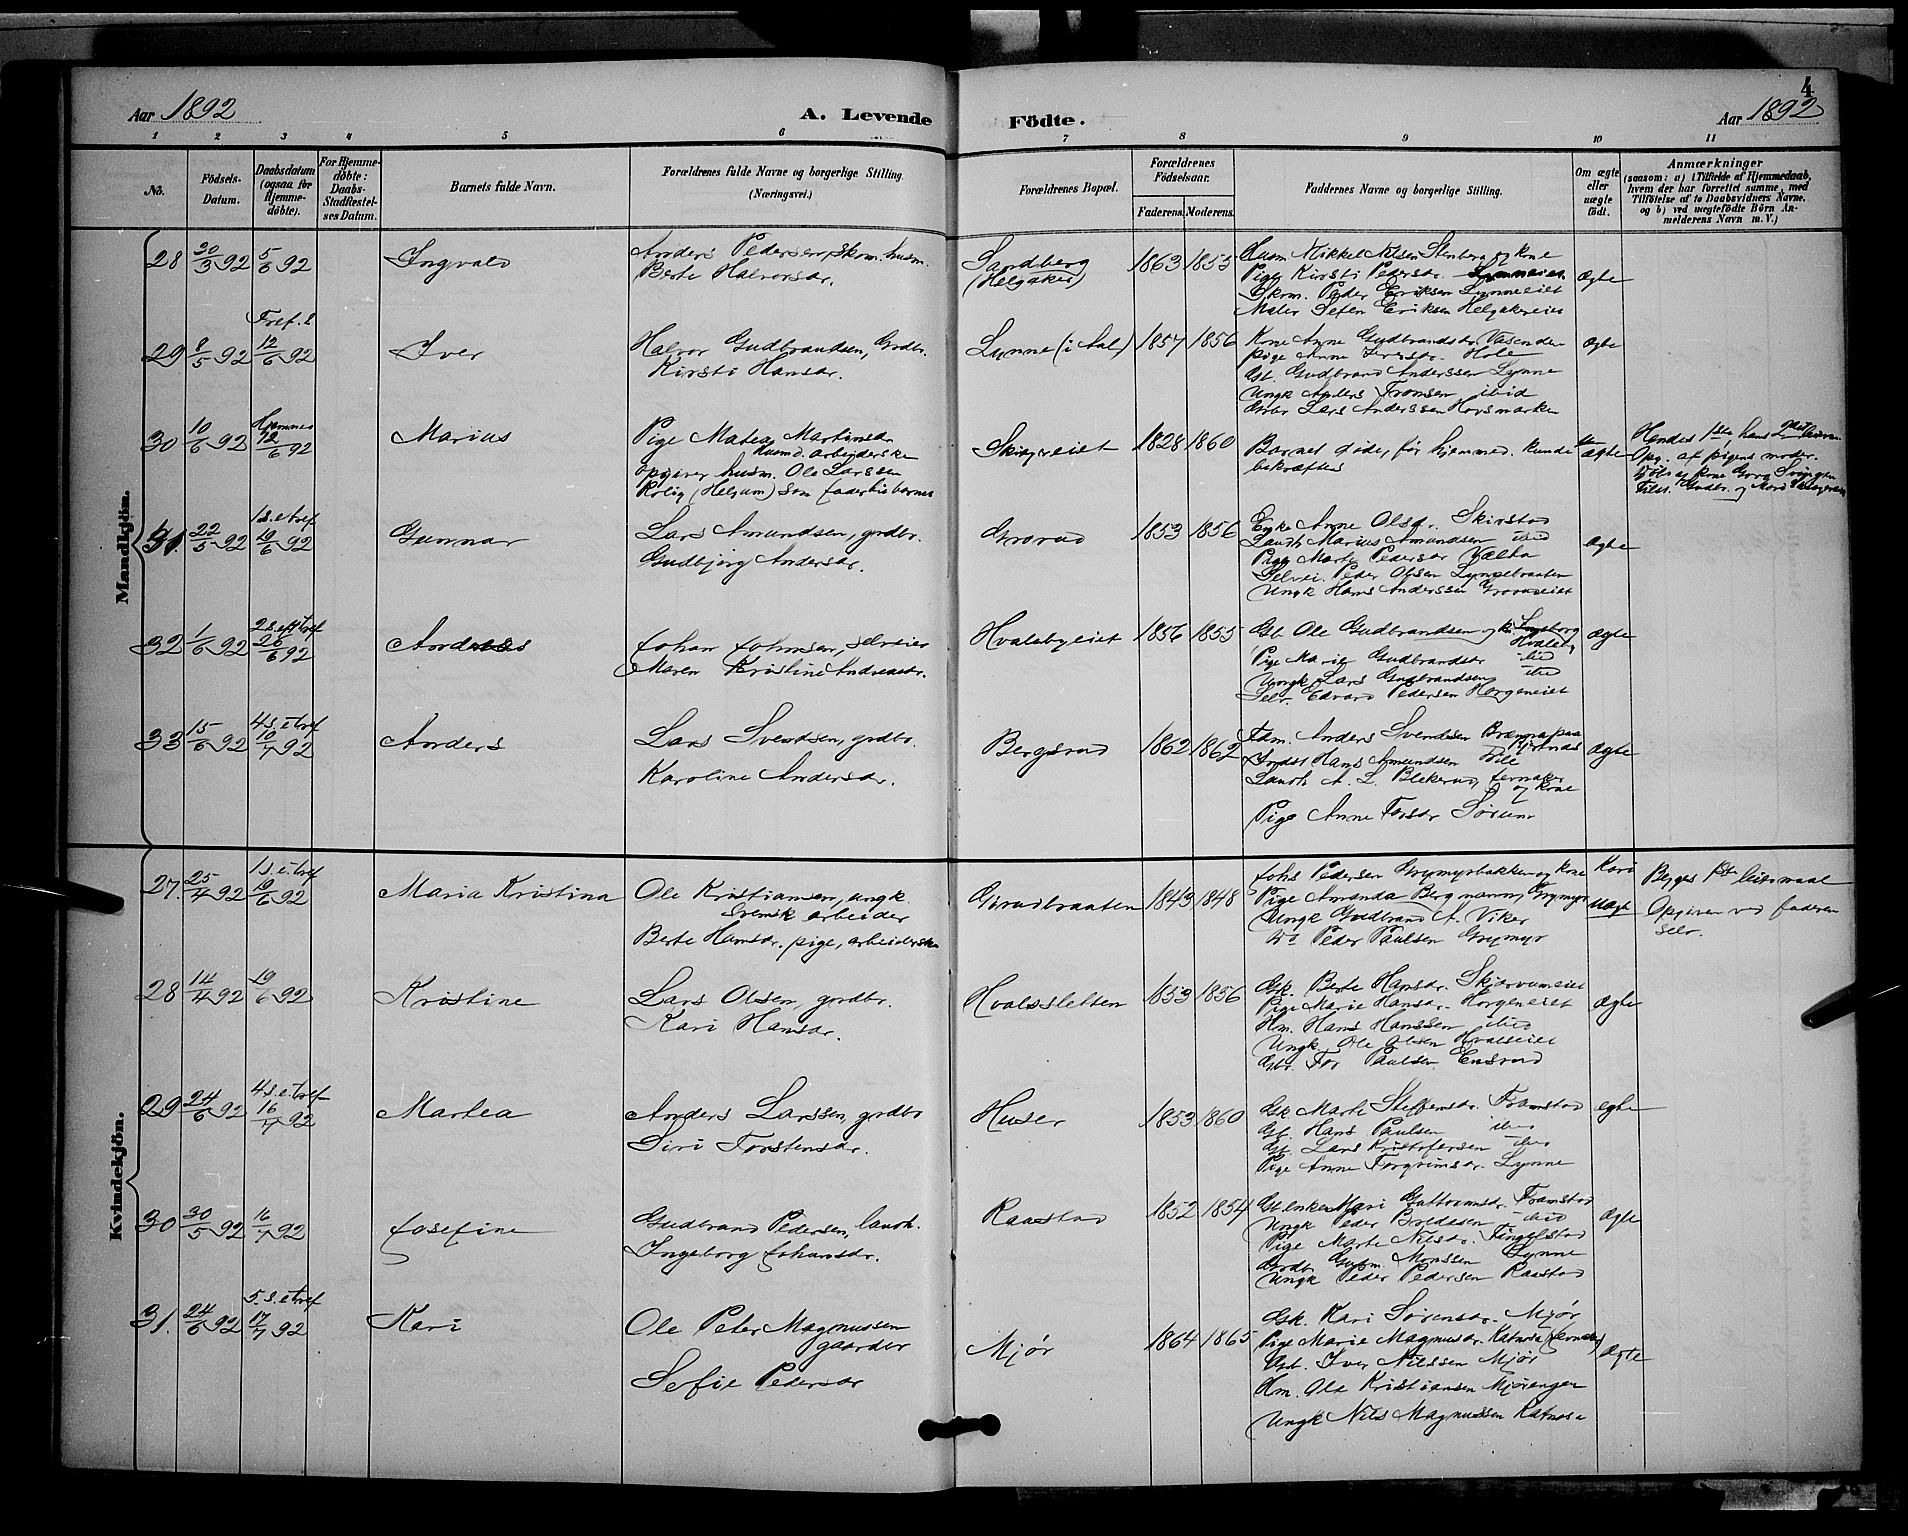 4
Aar 1892
A. Levende Födte.
Aar 1892
1 2 3 4 5 6 7 8 9 10 11
No.
Födsels-
Datum.
Daabsdatum
(ogsaa for
Hjemme-
döbte).
For Hjemme-
döbte:
Daabs-
Stadfæstel-
ses Datum.
Barnets fulde Navn.
Forældrenes fulde Navne og borgerlige Stilling.
(Næringsvei.)
Forældrenes Bopæl.
Forældrenes
Födselsaar.
Faderens.
Moderens.
Faddernes Navne og borgerlige Stilling.
Om ægte
eller
uægte
födt.
Anmærkninger
(saasom: a) i Tilfælde af Hjemmedaab,
hvem der har forrettet samme, med
Tilföielse af to Daabsvidners Navne,
og b) ved uægtefödte Börn An-
melderens Navn m. V.)
Mandkjön.
28 20/3 92 5/6 92
Ingvald
Anders Pedersen, skom. husm.
Berte Halvorsdr.
Sandberg
(Helgaker)
1863 1855
Husm. Mikkel Nilsen Stenberg og kone
Pige Kirsti Pedersdr.
Skom. Peder Eriksen Lynneeiet
Maler Eriksen Helgakereiet
Ægte
Tref. s
29 8/5 92 12/6 92
Iver
Halvor Gudbrandsen, Grdbr.
Kirsti Hansdr.
Lynne (i Aal)
1857 1856
Kone Anne Gudbrandsdr. Vasenden
Pige Anne Iversdr. Hole
Gst. Gudbrand Anderssen Lynne
Ungk Anders Tromsen ibid
Grbr Lars Anderssen Hovsmarken
Ægte
30 10/6 92 Hjemmed 12/6 92
Marius
Pige Matea Martinsdr
husmd. arbeiderske
opgiver husm. Ole Larssen
Rolig (Helgum) som fader til barnet
Skiagereiet
1828 1860
Barnet døde, før hjemmed. kunde
bekræftes
Uægte
Hendes 1ste, hans 2det leierm.
Opg. af pigens moder.
31. 22/5 92 1 s. e tref 19/6 92
Gunnar
Lars Amundsen, grdbr.
Gudbjørg Andersdr.
Grorud
1853 1856
Enke Anne Olsdr. Skirstad
Landh Marius Amundsen ibid
Pige Marte Pedersdr Velta
Selvei. Peder Olsen Lyngebraaten
Ungk Hans Anderssen Grorudeiet
Ægte
32 1/6 92 2 s. eft tref 26/6 92
Andreas
Johan Johnsen, selveier
Maren Kristine Andreasdr.
Hvalebyeiet
1856 1855
Gb. Ole Gudbrandsen og k.
Hvaleby
Pige Marie Gudbrandsdr ibid
Ungk Lars Gudbrandsen ibid
Selv. Edvard Pedersen Horgeneiet
Ægte
33 15/6 92 4 s. e tref 10/7 92
Anders
Lars Svendsen, grdbr.
Karoline Andersdr.
Bergsrud
1862 1862
Fdm. Anders Svendsen
Indst Hans Amundsen
Landh A. L. Blekerud, Jernaker
og kone
Pige Anne Torsdr Sørum
Ægte
Kvindekjön.
27. 25/4 92 1 s. e. tref 19/6 92
Maria Kristina
Ole Kristiansen, ungk.
svensk arbeider
Berte Hansdr. pige, arbeiderske
Grudbraaten
1843 1848
Johs Pedersen Grymyrbakken og kone Kari
Pige Amanda Bergmann, Grymyr
Ungk Gudbrand A. Viker
Do Peder Paulsen Grymyr
Uægte
Begges 1ste leiermaal
Opgiven ved faderen
selv.
28 14/4 92 19/6 92
Kristine
Lars Olsen, grdbr.
Kari Hansdr.
Hvalssletten
1853 1856
Gk. Berte Hansdr. Skjervumeiet
Pige Marie Hansdr. Horgeneiet
Hm. Hans Hanssen ibid
Ungk. Ole Olsen Hvaleeiet
Gbr. Tor Paulsen Ensrud
Ægte
29 24/6 92 4 s. e. tref 16/7 92
Martea
Anders Larssen, grdbr
Siri Torstensdr.
Huser
1853 1860
Gk Marte Steffensdr. Framstad
Gst. Hans Paulsen ibid
Gst. Lars Kristofersen ibid
Pige Anne Torgrimsdr. Lynne
Ægte
30 30/5 92 16/7 92
Josefine
Gudbrand Pedersen, landh.
Ingeborg Johansdr.
Raastad
1852 1854
Gbenke Mari Guttormsdr. Framstad
Ungk Peder Bredesen ibid
Pige Marte Nilsdr. Tingelstad
Grdbr. Gudm. Monssen Lynne
Ungk Peder Pedersen Raastad
Ægte
31. 24/6 92 5. s. e tref 17/7 92
Kari
Ole Peter Magnussen
gaardbr
Sofie Pedersdr
Mjør
1864 1865
Gk. Kari Sørensdr. Mjør
Pige Marie Magnusdr. Katnosa (Jevnaker)
Gst. Iver Nilssen Mjør
Hm. Ole Kristiansen Mjørengen
Ungk Nils Magnussen Katnosa
Ægte